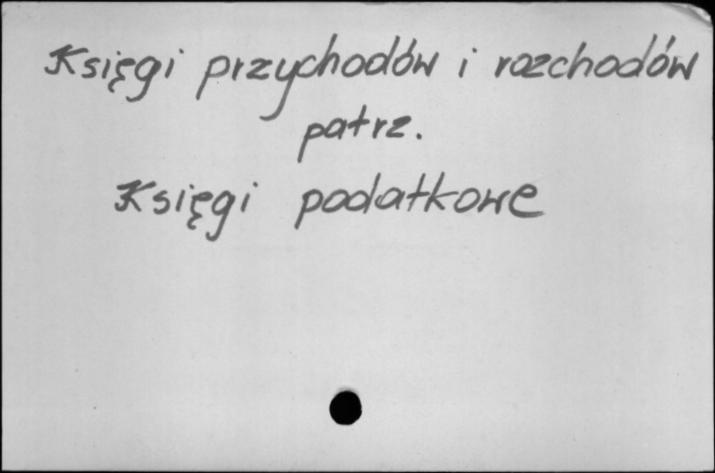 Księgi przychodów i rozchodów
patrz.
Księgi podatkowe